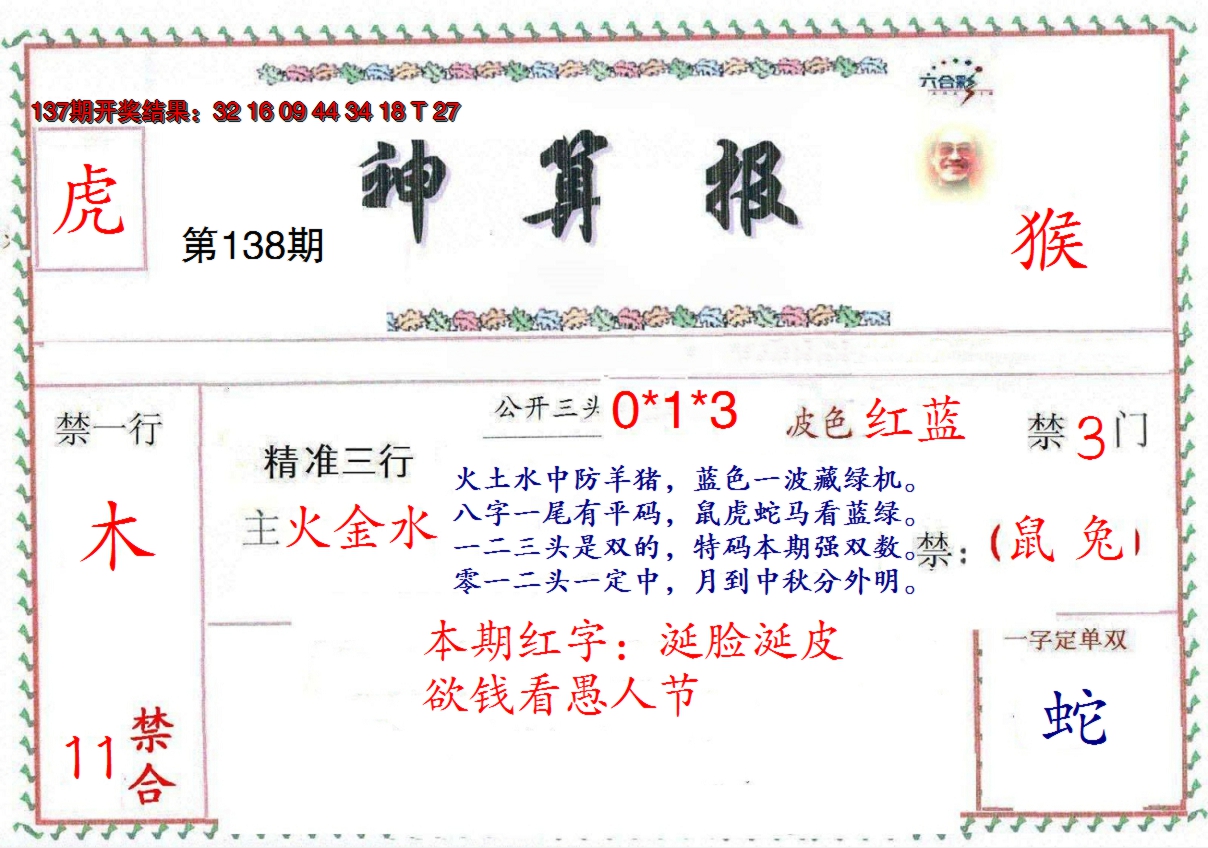 六合彩
137期开奖结果：32 16 09 44 34 18 T 27
神算报
虎
第138期
猴
禁一行
木
11
禁合
公开三头 0*1*3
波色 红蓝
禁3门
精准三行
主火金水
火土水中防羊猪，蓝色一波藏绿机。
八字一尾有平码，鼠虎蛇马看蓝绿。
一二三头是双的，特码本期强双数。
零一二头一定中，月到中秋分外明。
禁：（鼠 兔）
本期红字：涎脸涎皮
欲钱看愚人节
一字定单双
蛇